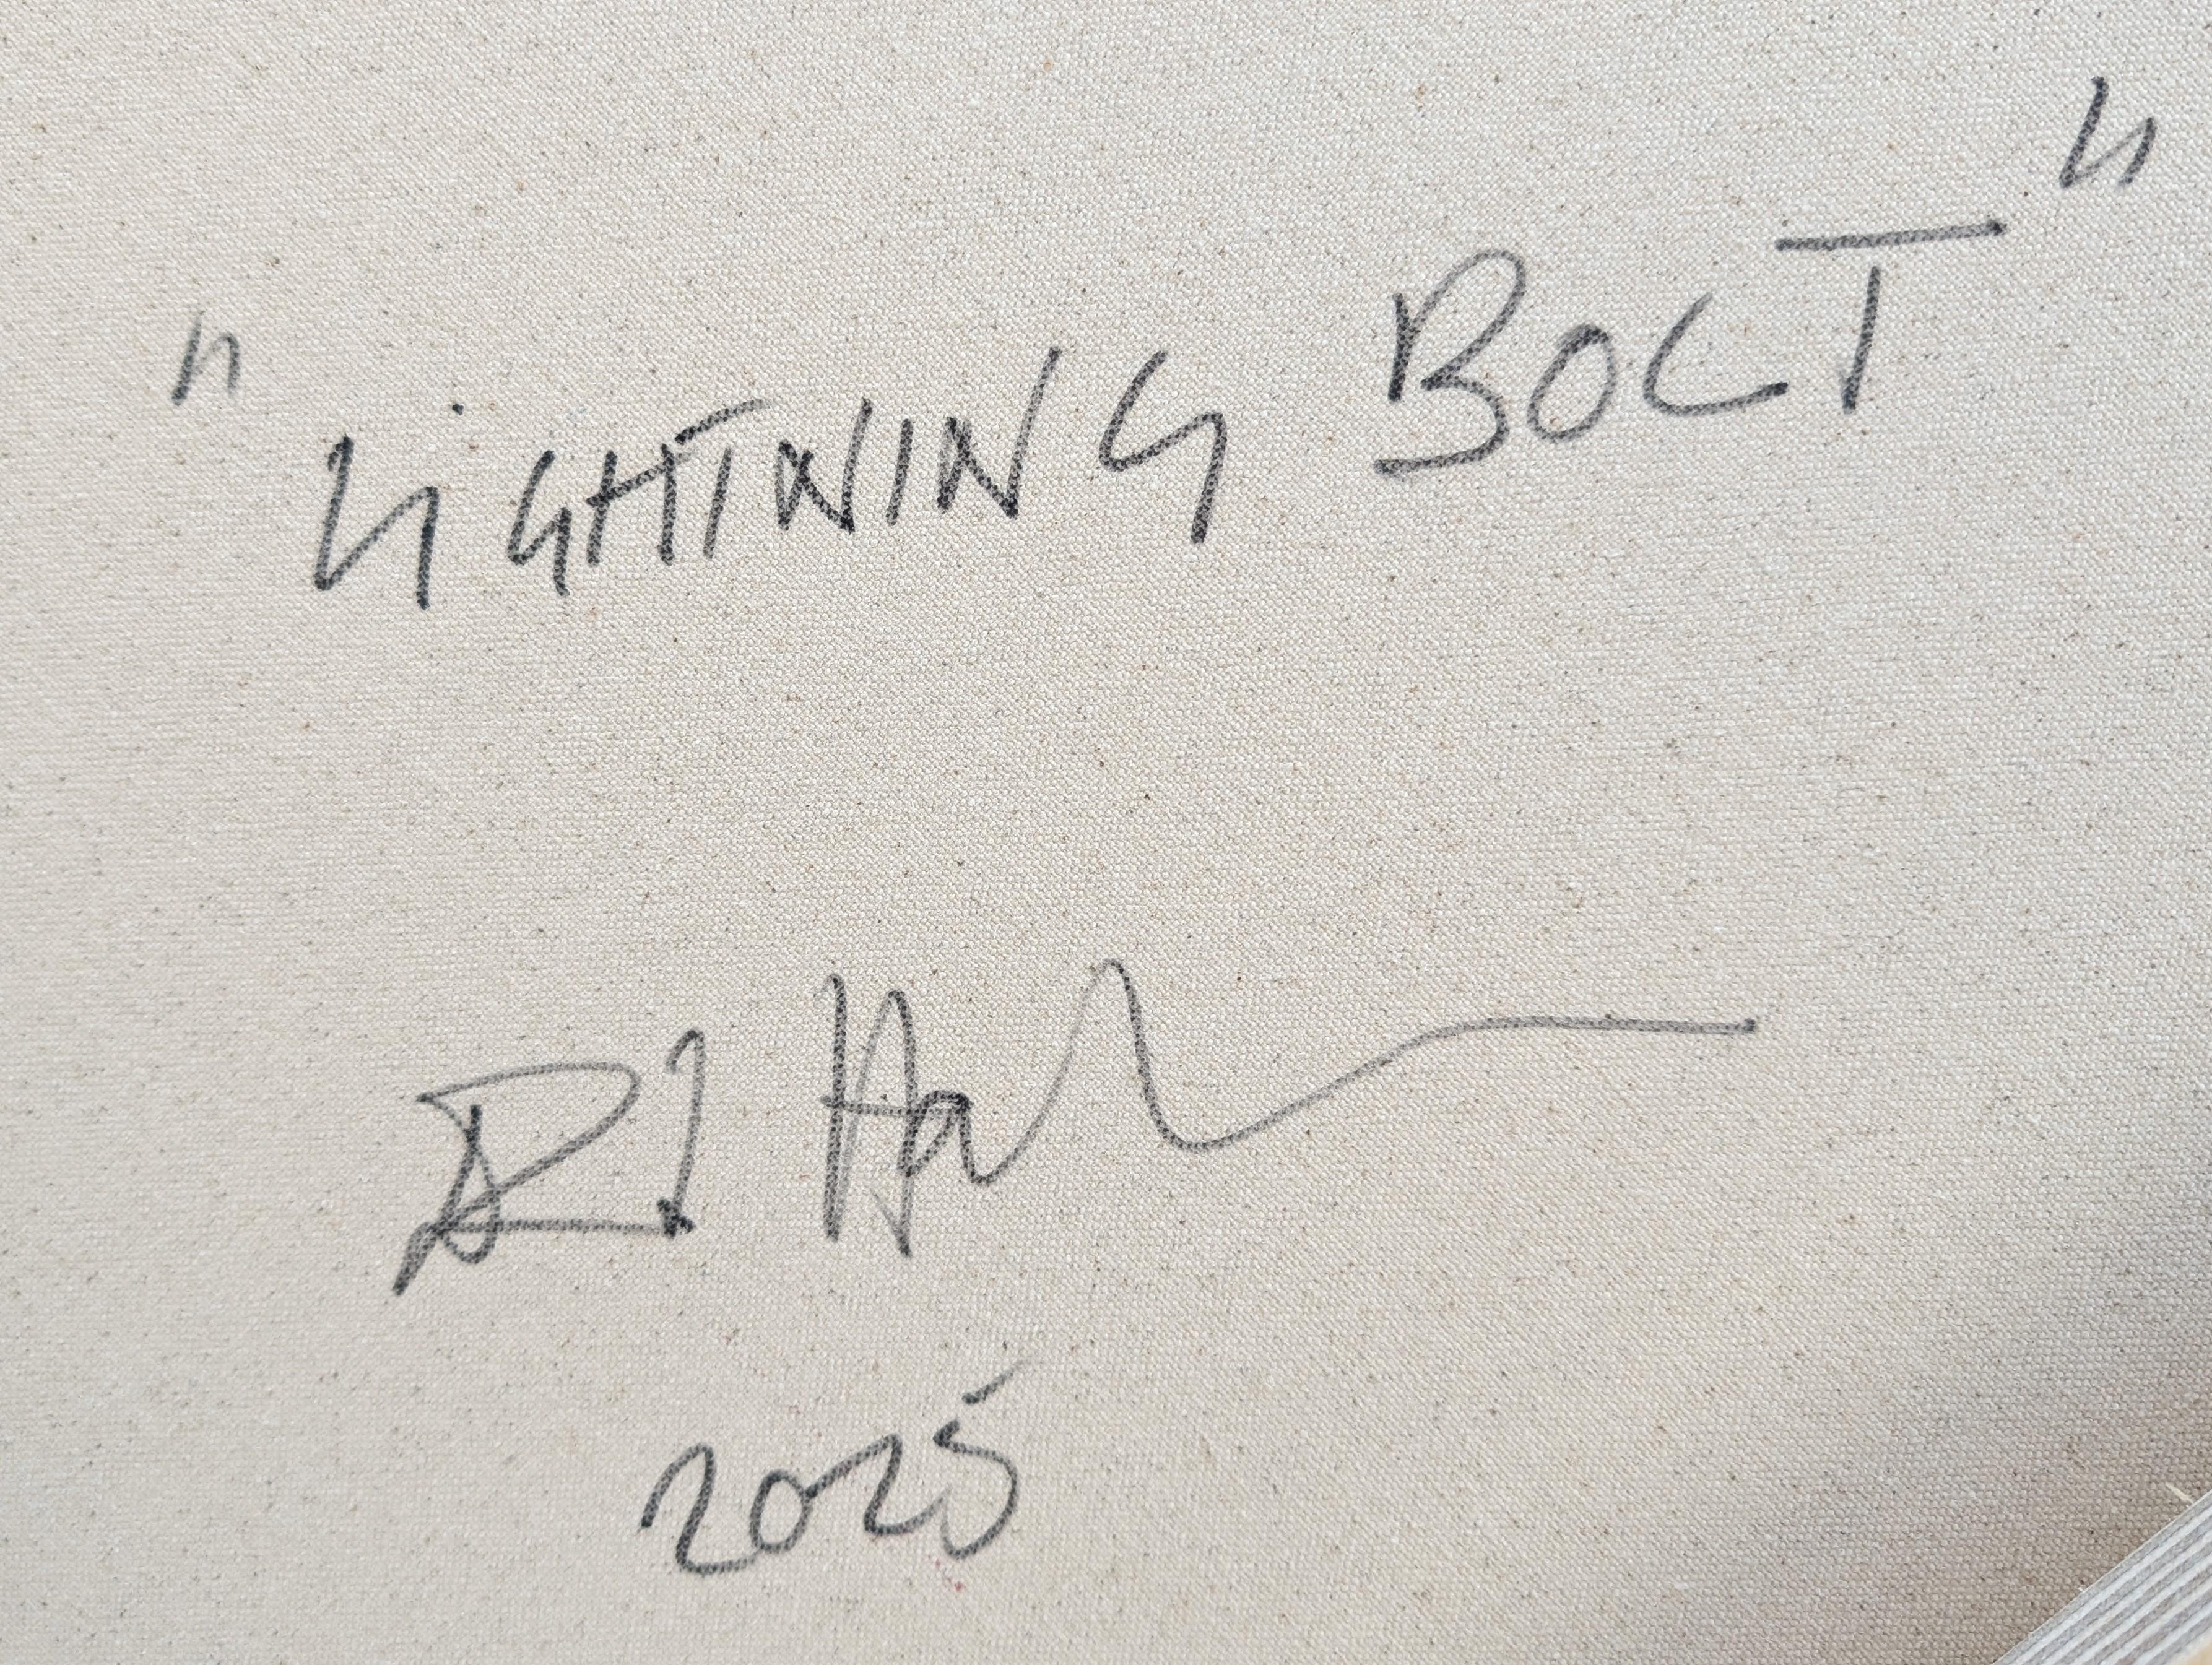 "LIGHTNING BOLT"
2025